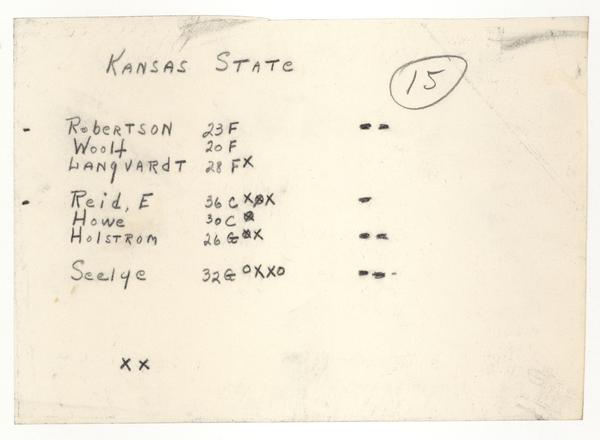 KANSAS STATE
15
ROBERTSON 23 F
Woolf 20 F
LANGVARDT 28 F X
Reid, E 36 C X X X
Howe 30 C X
HOLSTROM 26 G X X
Seelye 32 G O X X O
X X